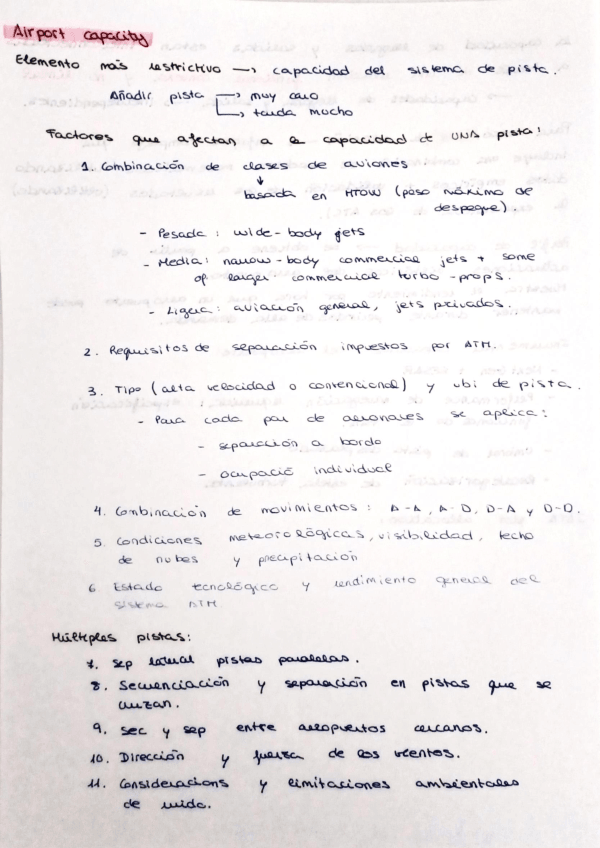 Airport capacity
Elemento más restrictivo → capacidad del sistema de pista.
Añadir pista → muy caro
→ tarda mucho
Factores que afectan a la capacidad de UNA pista:
1. Combinación de clases de aviones
↓
basada en MTOW (peso máximo de
despegue).
- Pesada: wide-body jets
- Media: narrow-body commercial jets + some
of larger commercial turbo-props.
- Ligera: aviación general, jets privados.
2. Requisitos de separación impuestos por ATM.
3. Tipo (alta velocidad o convencional) y ubi de pista.
- Para cada par de aeronaves se aplica:
- separación a bordo
- ocupació individual
4. Combinación de movimientos: A-A, A-D, D-A y D-D.
5. Condiciones meteorológicas, visibilidad, techo
de nubes y precipitación
6 Estado tecnológico y rendimiento general del
sistema ATM.
Múltiples pistas:
7. sep lateral pistas paralelas.
8. Secuenciación y separación en pistas que se
cruzan.
9. sec y sep entre aeropuertos cercanos.
10. Dirección y fuerza de los vientos.
11. Consideracions y limitaciones ambientales
de ruido.